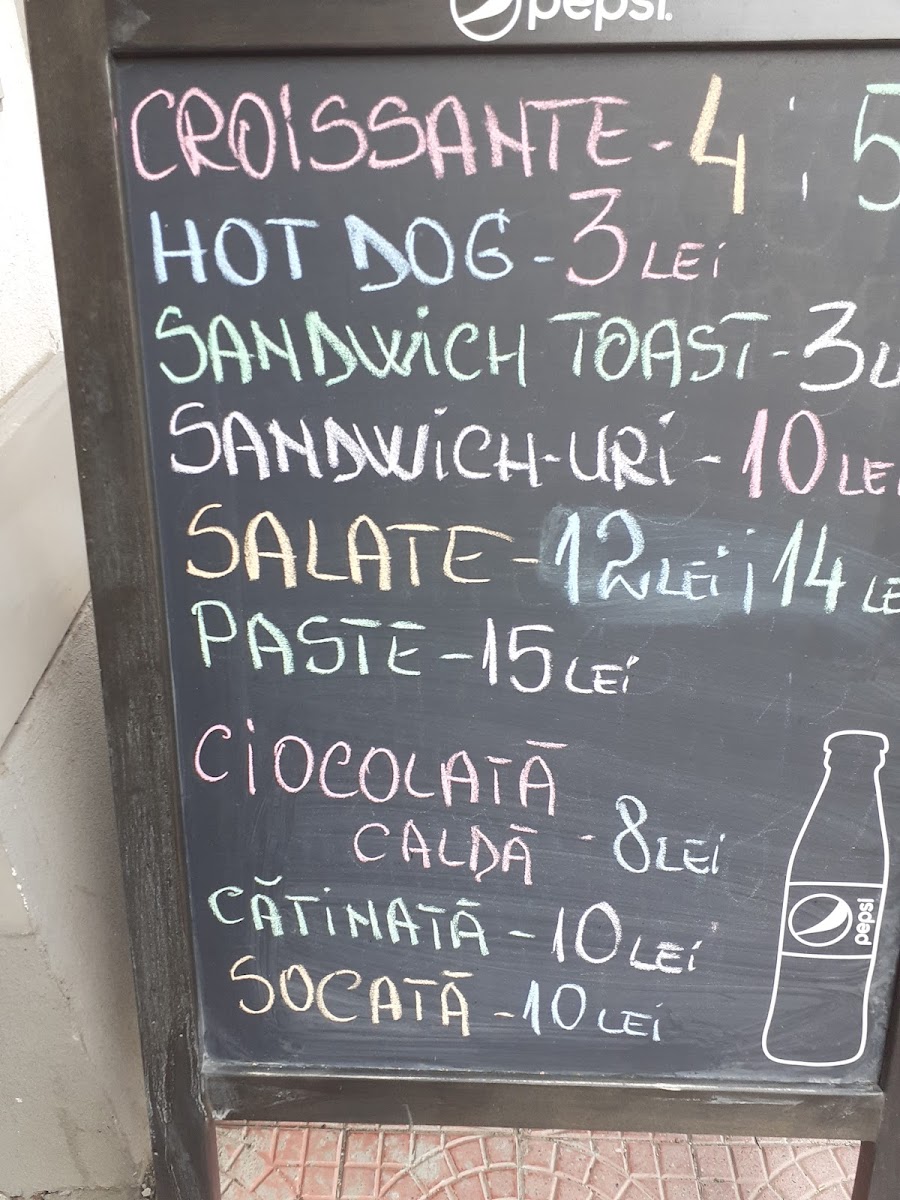 pepsi.
CROISSANTE - 4 ; 5
HOT DOG - 3 LEI
SANDWICH TOAST - 3 L
SANDWICH-URI - 10 LEI
SALATE - 12 LEI ; 14 LE
PASTE - 15 LEI
CIOCOLATĂ
CALDĂ - 8 LEI
CĂTINATĂ - 10 LEI
SOCATĂ - 10 LEI
pepsi